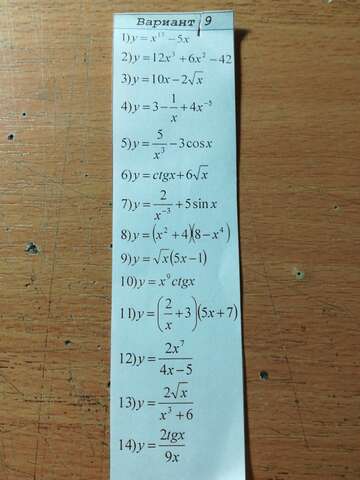 Вариант 9
1) y = x¹³ − 5x
2) y = 12x³ + 6x² − 42
3) y = 10x − 2√x
4) y = 3 − 1/x + 4x⁻⁵
5) y = 5/x³ − 3cosx
6) y = ctgx + 6√x
7) y = 2/x⁻³ + 5 sin x
8) y = (x² + 4)(8 − x⁴)
9) y = √x(5x − 1)
10) y = x⁹ctgx
11) y = (2/x + 3)(5x + 7)
12) y = 2x⁷/(4x − 5)
13) y = 2√x/(x³ + 6)
14) y = 2tgx/9x